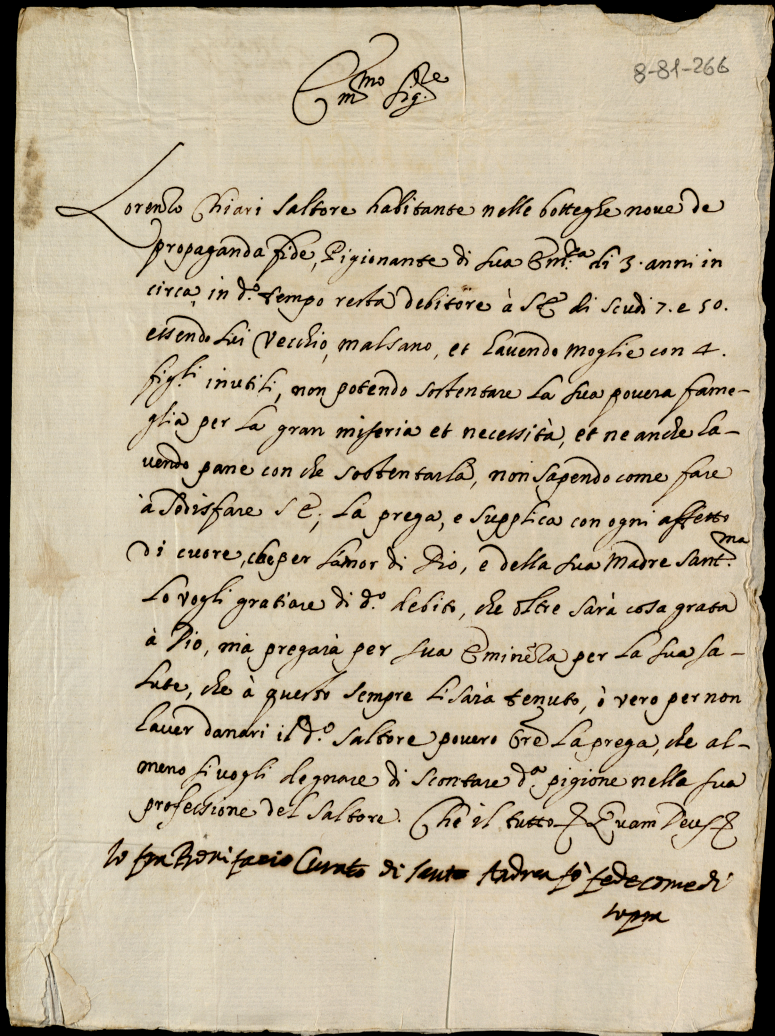 8-81-266
Em.mo Sig.re
Lorenzo Chiari Saltore habitante nelle botteghe nove de
propaganda fide, Pigionante di sua Em.za di 3. anni in
circa, in d.o tempo resta debitore à S E di scudi 7. e 50.
essendo lui Vecchio, malsano, et havendo moglie con 4.
figl.i inutili, non potendo sostentare la sua povera fame-
glia per la gran miseria et necessità, et ne anche ha-
vendo pane con che sostentarla, non sapendo come fare
à sodisfare S E; la prega, e supplica con ogni affetto
di cuore, che per l'amor di Dio, e della sua Madre Sant.ma
lo vogli gratiare di d.o debito, che oltre sarà cosa grata
à Dio, mà pregarà per sua Eminēza per la sua sa-
lute, che à questo sempre li sarà tenuto, ò vero per non
haver danari il d.o Saltore povero Ore la prega, che al-
meno si vogli degnare di scontare d.a pigione nella sua
professione del Saltore. Che il tutto Quam Deus
Io fra Bonifacio Curato di Santo Andrea fo fede come di
sopra